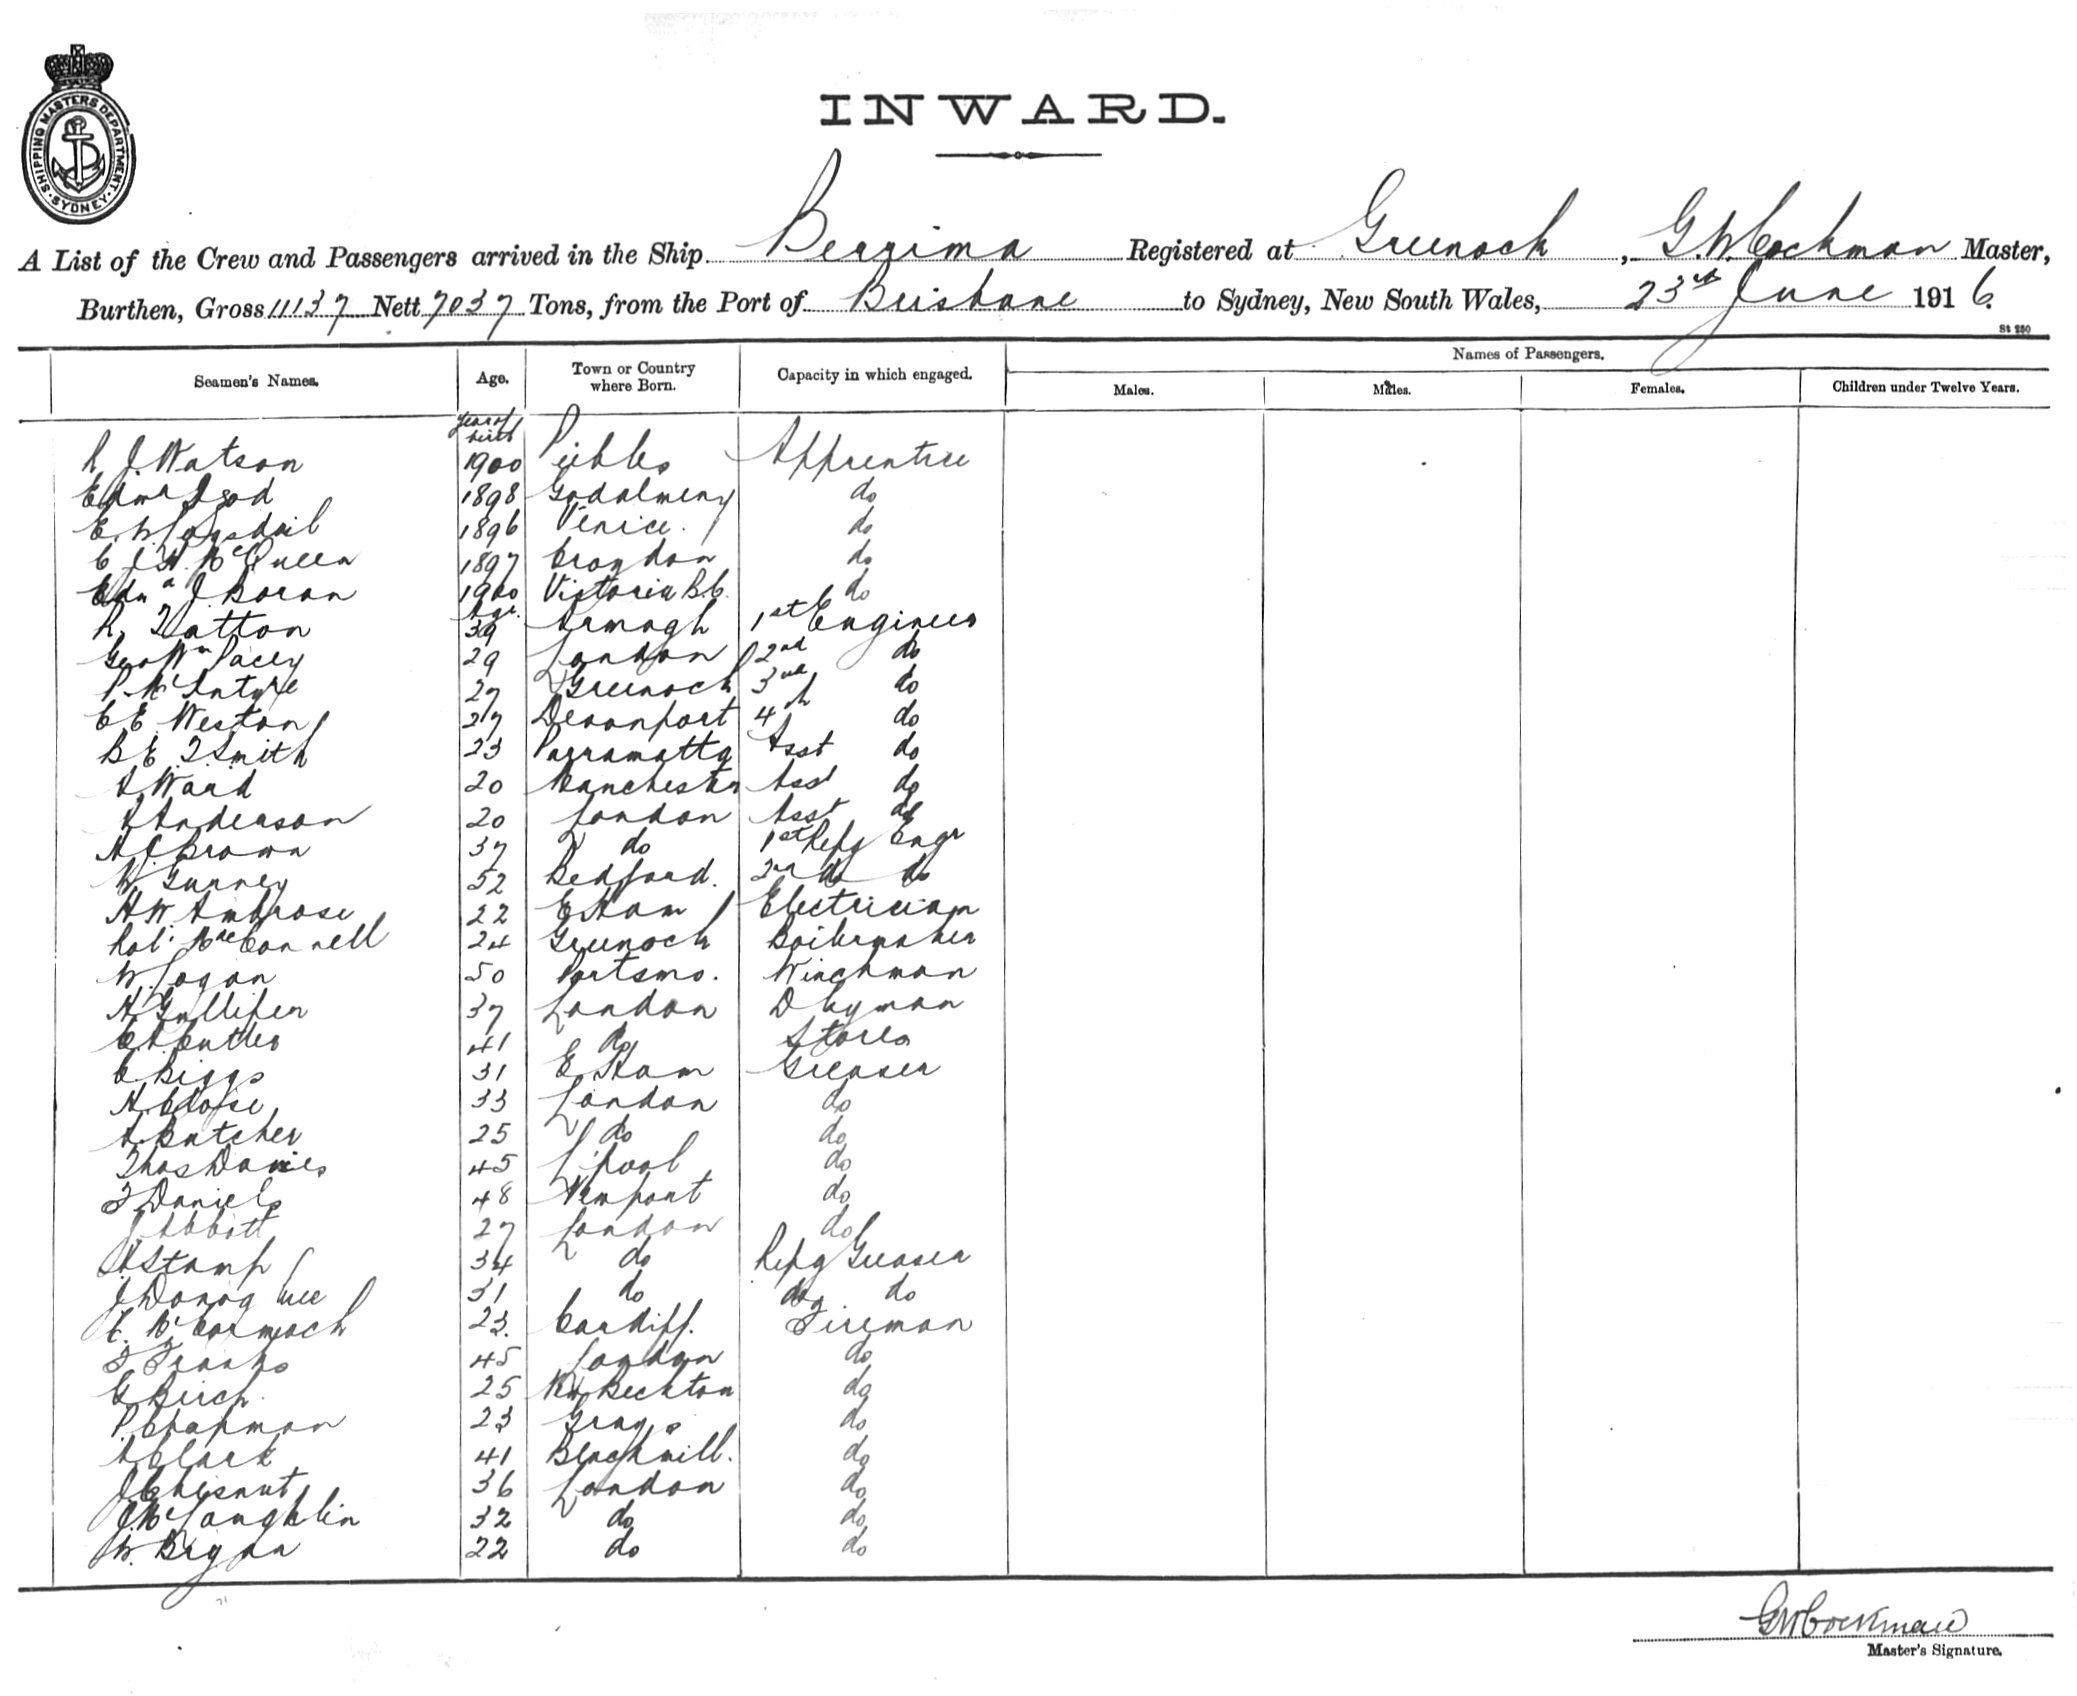 SHIPPING MASTERS DEPARTMENT · SYDNEY ·
INWARD.
A List of the Crew and Passengers arrived in the Ship Berrima Registered at Greenock, G.W. Cockman Master,
Burthen, Gross 11137 Nett 7037 Tons, from the Port of Brisbane to Sydney, New South Wales, 23rd June 1916.
St 250
Names of Passengers.
Seamen's Names. Age. Town or Country where Born. Capacity in which engaged. Males. Males. Females. Children under Twelve Years.
Year of birth
R J Watson 1900 Peebles Apprentice
1898 Godalming do
E. W. Logsdail 1896 Venice. do
C J H McQueen 1897 Croydon do
J Boran 1900 Victoria B.C. do
Age.
R. Tatton 39 Armagh 1st Engineer
Geo Wm Pacey 29 London 2nd do
P McIntyre 27 Greenock 3rd do
C E Weston 27 Devonport 4th do
B E T Smith 23 Parramatta Asst do
A Ward 20 Manchester Asst do
Anderson 20 London Asst do
A C Brown 37 do 1st Refg Engr
W Gurney 52 Bedford. 2nd do do
H W Ambrose 22 E Ham Electrician
Robt MacConnell 24 Greenock Boilermaker
W. Logan 50 Portsmo. Winchman
H Gulliper 37 London Dkyman
C A Cutler 41 do Stores
C Biggs 31 E Ham Greaser
H. Close 33 London do
A Butcher 25 do do
Thos Davies 45 L'pool do
T Daniels 48 Newport do
J Abbott 27 London do
A Stamp 34 do Refg Greaser
J Donoghue 31 do do do
C. McCormack 23. Cardiff. Fireman
T Franks 45 London do
G Birch. 25 Nw Beckton do
P. Chapman 23 Grays do
A Clark 41 Blackwill. do
J Chesnut 36 London do
J McLaughlin 32 do do
W. Bryan 22 do do
GWCockman
Master's Signature.